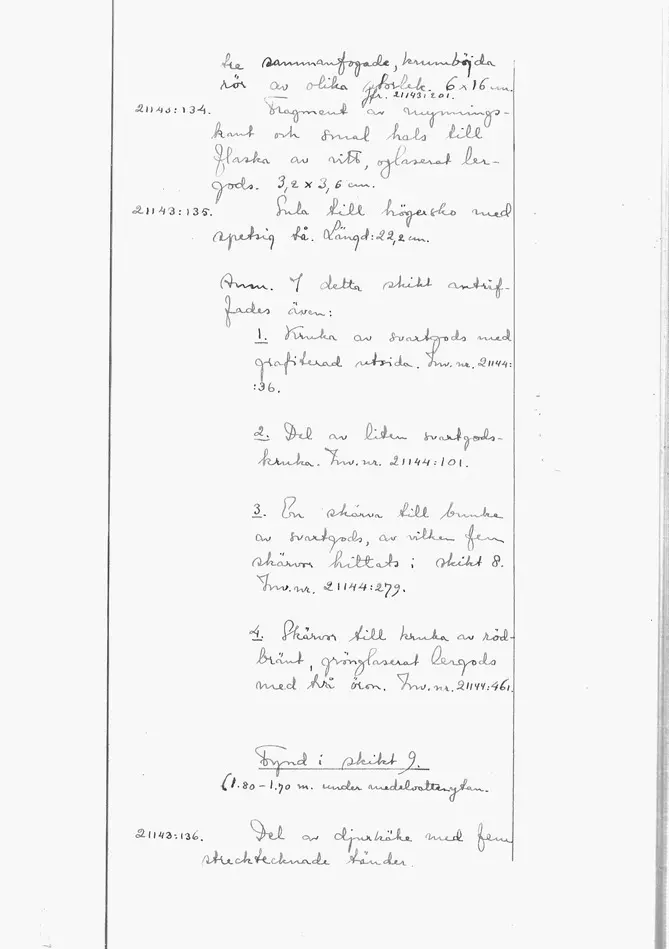 tre sammanfogade, krumböjda
rör av olika storlek. 6 x 16 cm.
Jfr. 21143:201.
21143:134. Fragment av mynnings-
kant och smal hals till
flaska av vitt, oglaserat ler-
gods. 3,2 x 3,6 cm.
21143:135. Sula till högersko med
spetsig tå. Längd: 22,2 cm.
Anm. I detta skikt antrif-
fades även:
1. Kruka av svartgods med
grafiterad utsida. Inv. nr. 21144:
:36.
2. Del av liten svartgods-
kruka. Inv. nr. 21144:101.
3. En skärva till bunke
av svartgods, av vilken fem
skärvor hittats i skikt 8.
Inv. nr. 21144:279.
4. Skärvor till kruka av röd-
bränt, grönglaserat lergods
med två öron. Inv. nr. 21144:461.
Fynd i skikt 9.
(1.80 - 1.70 m. under medelvattenytan.
21143:136. Del av djurkäke med fem
strecktecknade tänder.